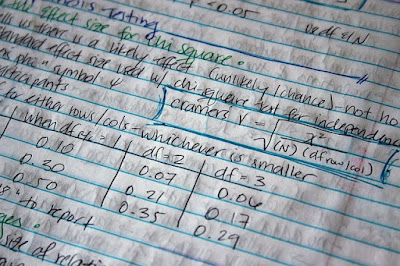 p<0.05
Hypothesis Testing
w/df & N
effect size for chi square.
us there is a likely effect (unlikely/chance) - not ho
effect size used w/ chi-square test for independence
phi" symbol
cramers V = √ x²
(N) (df row/col)
participants
to either rows/cols - whichever is smaller
when df = 1 df = 2 df = 3
0.10 0.07 0.06
0.30 0.21 0.17
0.50 0.35 0.29
" to report
size of relati